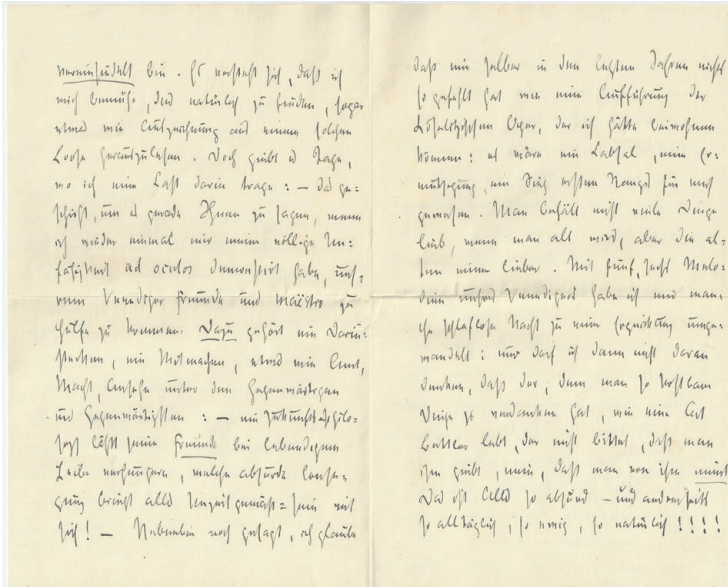 vereinsiedelt bin. Es versteht sich, daß ich
mich bemühe, das natürlich zu finden, sogar
etwas wie Auszeichnung aus einem solchen
Loose herauszulesen. Doch giebt es Tage,
wo ich eine Last darin trage: — das ge-
schieht, um es gerade Ihnen zu sagen, wenn
ich wieder einmal mir meine völlige Un-
fähigkeit ad oculos demonstrirt habe, unse-
rem Venediger Freunde und maëstro zu
Hülfe zu kommen. Dazu gehört ein Darin-
stecken, ein Mitmachen, etwas wie Amt,
Macht, Ansehn unter den Gegenwärtigen
und Gegenwärtigsten: — ein Zukunfts-Philo-
soph läßt seine Freunde bei lebendigem
Leibe verhungern, welche absurde Conse-
quenz bringt alles Unzeitgemäß-sein mit
sich! — Nebenbei noch gesagt, ich glaube
daß mir selber in den letzten Jahren nichts
so gefehlt hat wie eine Aufführung der
Köselitzischen Oper, der ich hätte beiwohnen
können: es wäre ein Labsal, eine Er-
muthigung, ein Ding ersten Ranges für mich
gewesen. Man behält nicht viele Dinge
lieb, wenn man alt wird, aber die al-
ten immer lieber. Mit fünf, sechs Melo-
dien unsres Venedigers habe ich mir man-
che schlaflose Nacht zu einer Erquickung umge-
wandelt: nur darf ich dann nicht daran
denken, daß der, dem man so kostbare
Dinge zu verdanken hat, wie eine Art
Bettler lebt, der nicht bittet, daß man
ihm giebt, nein, daß man von ihm nimmt
Das ist Alles so absurd — und andrerseits
so alltäglich, so ewig, so natürlich!!!!